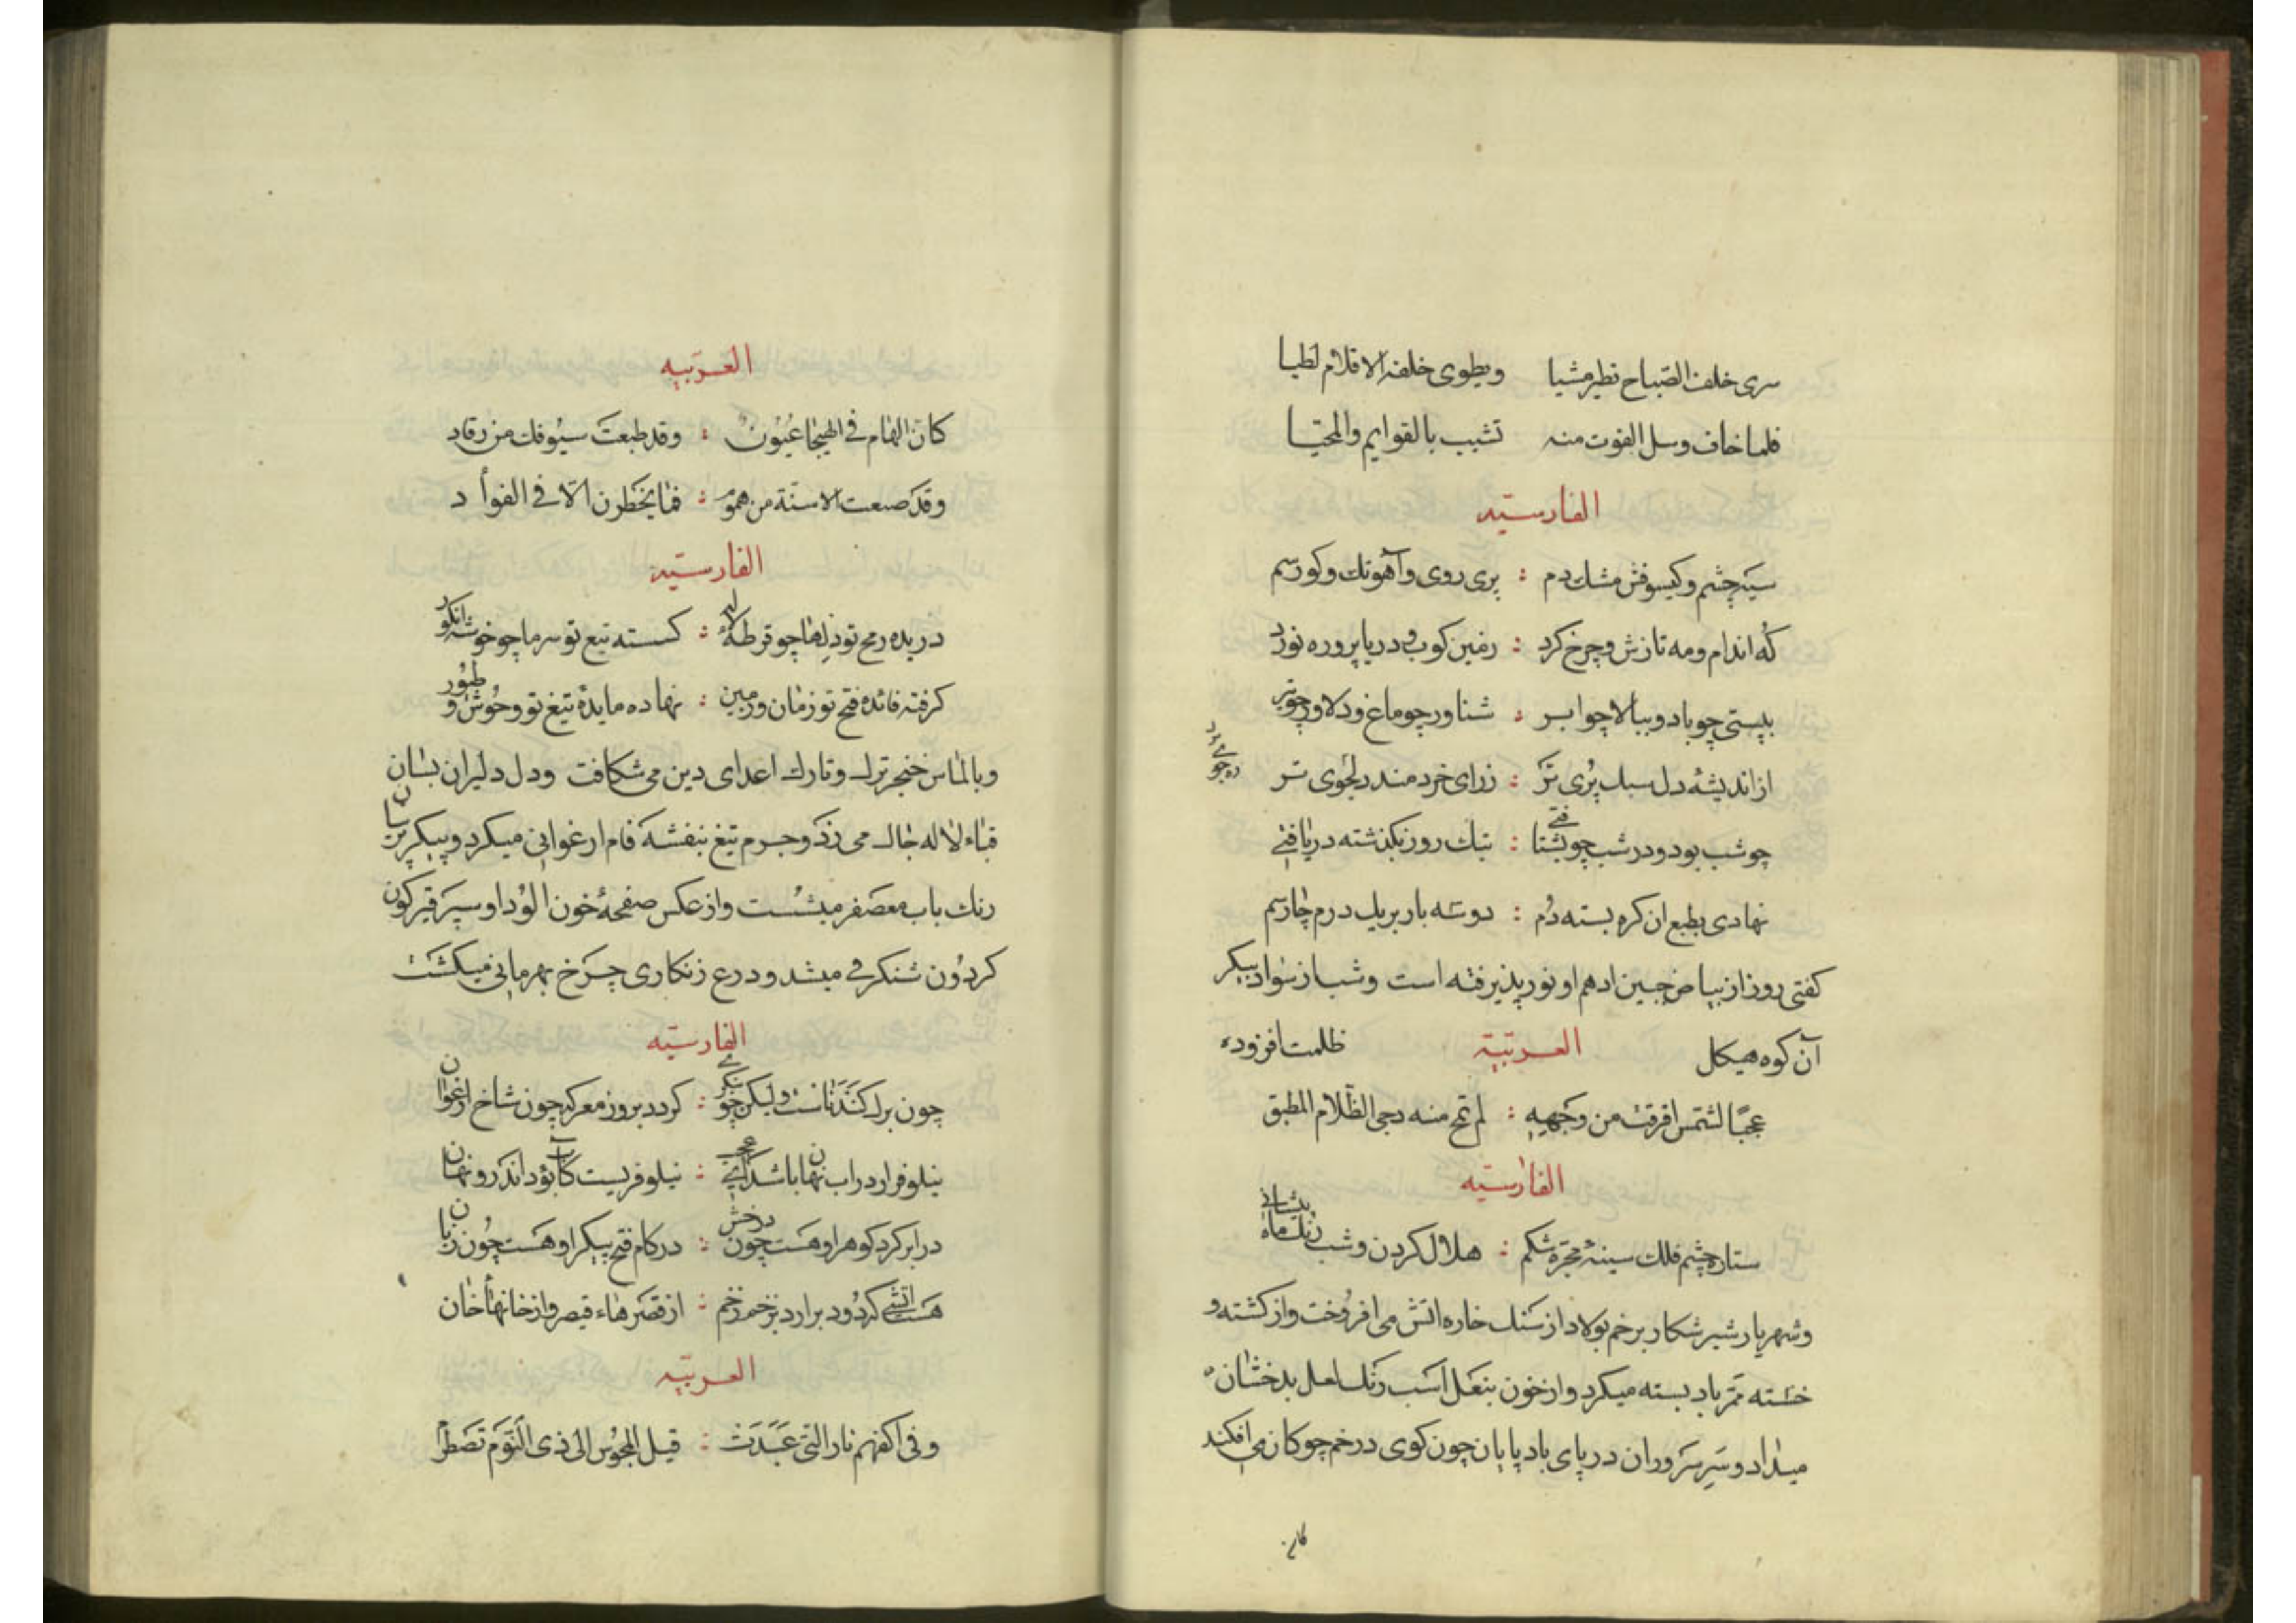 سری خلف الصباح نطیر مشیا ویطوی خلفه الافلاک طیا
فلما خاف وسل الفوت منه تشیب بالقوایم والمحیا
الفارسیه
سیه چشم و کیسو فش مشك دم : پری روی و آهو تك و کور سم
که اندام و مه تازش و چرخ کرد : زمین کوب و دریا بر و ره نورد
بپستی چو باد و ببالا چو ابر : شناور چو ماغ و دلاور چو ببر
از اندیشهٔ دل سبك پوی تر : ز رای خردمند ره جوی تر
چو شب بود و در شب چو بشتافتی : بتك روز بکذشته دریافتی
نهادی بطبع ان کره بسته دم : دوسه بار بر یك درم چار سم
کفتی روز از بیاض جبین ادهم او نور پذیرفته است وشب از سواد پیکر
آن کوه هیکل ظلمت افزوده
العربیة
عجبا لشمس افرقت من وجهه : لم تمح منه دجی الظلام المطبق
الفارسیه
ستاره چشم فلك سینهٔ مجره شکم : هلال کردن وشب رنك ماه پیشانی
وشهریار شیر شکار بزخم پولاد از سنك خاره اتش می افروخت واز کشته و
خسته ممر باد بسته میکرد واز خون بنعل اسب رنك لعل بدخشان
میداد وسر سروران در پای باد پایان چون کوی در خم چوکان می افکند
العربیه
کان الهام فی الهیجا عیون : وقد طبعت سیوفك من رقاد
وقد صبعت الاسنة من هموم : فما یخطرن الا فی الفواد
الفارسیه
دریده رمح تو دلها چو قرطهٔ لاله : کسسته تیغ تو سرها چو خوشه انکور
کرفته فائدهٔ فتح تو زمان و زمین : نهاده مایدهٔ تیغ تو وحوش و طیور
وبالماس خنجر ترك وتارك اعدای دین می شکافت ودل دلیران بسان
قباء لاله چاك می زد وجرم تیغ بنفشه فام ارغوانی میکرد وپیکر
رنك باب معصفر میشست واز عکس صفحهٔ خون الود او سپر قیر کون
کردون شنکرفی میشد ودرع زنکاری چرخ بهرمانی میکشت
الفارسیه
چون برك کندناست ولیکن چو بنکری : کردد بروز معرکه چون شاخ ارغوان
نیلوفر ار در اب نهان باشد ای عجب : نیلوفریست کاب بود اندرو نهان
در ابر کرد کوهر او هست چون درخش : در کام فتح پیکر او هست چون زبان
هست اتشی که دود برارد بزخم زخم : از قصرهاء قیصر واز خانهاء خان
العربیه
وفی اکفهم نار التی عبدت : قبل المجوس الی ذی الیوم تضطرم